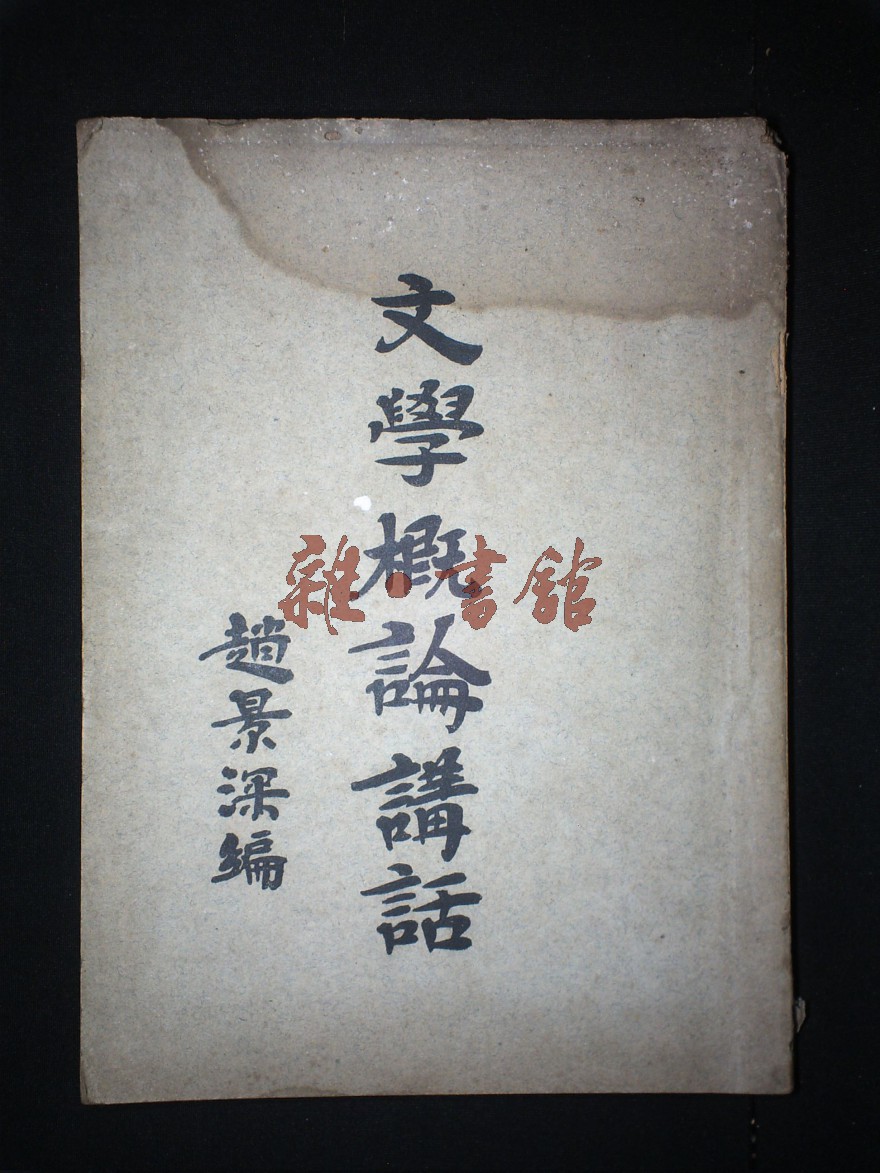 文學概論講話
趙景深編
雜·書館